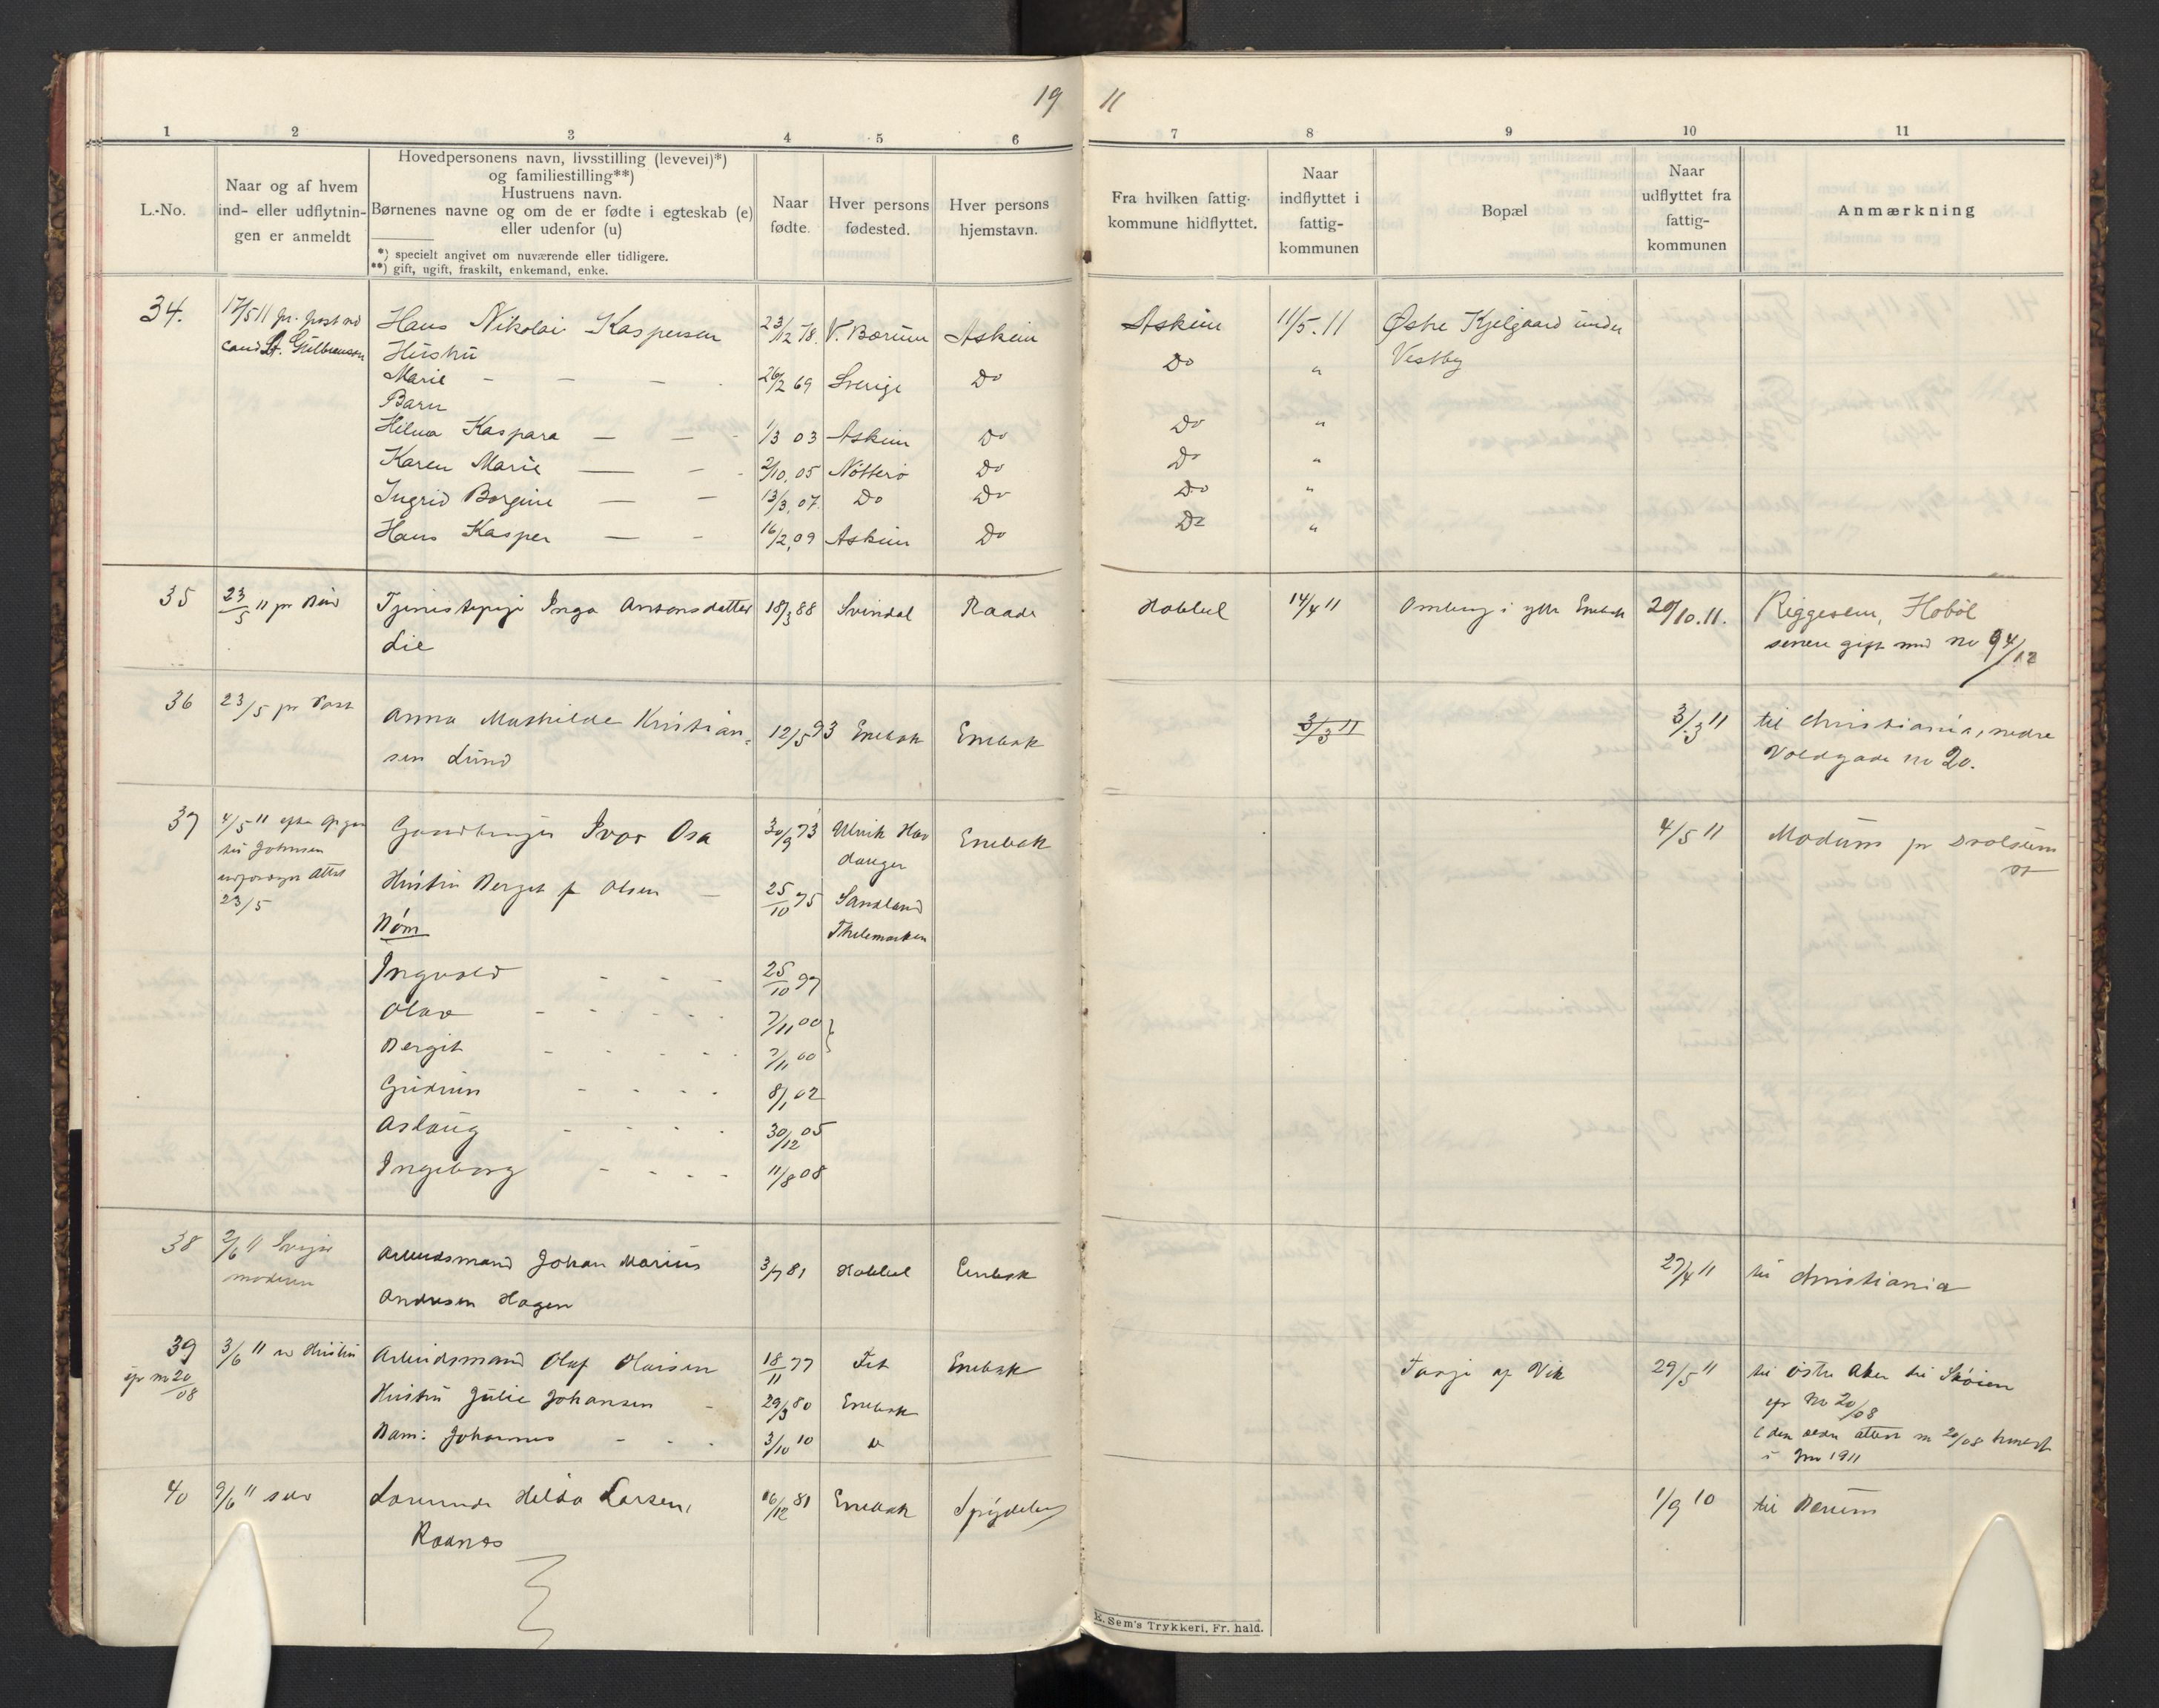 19 11
1 2 3 4 5 6 7 8 9 10 11
L.-No.
Naar og af hvem
ind- eller udflytnin-
gen er anmeldt
Hovedpersonens navn, livsstilling (levevei)*)
og familiestilling**)
Hustruens navn.
Børnenes navne og om de er fødte i egteskab (e)
eller udenfor (u)
*) specielt angivet om nuværende eller tidligere.
**) gift, ugift, fraskilt, enkemand, enke.
Naar
fødte.
Hver persons
fødested.
Hver persons
hjemstavn.
Fra hvilken fattig-
kommune hidflyttet.
Naar
indflyttet i
fattig-
kommunen
Bopæl
Naar
udflyttet fra
fattig-
kommunen
Anmærkning
34. 17/5 11 pr. post ved Hans Nikolai Kaspersen 23/12 78. V. Bærum Askim Askim 11/5. 11 Østre Kjelgaard under
Gulbransen Hustru Vestby
Marie - - - 26/2 69 Sverige Do Do "
Barn
Hilma Kaspara - - - 1/3 03 Askim Do Do "
Karen Marie - - - 2/10. 05 Nötterö Do Do "
Ingrid Borgine - - 13/3. 07. Do Do Do "
Hans Kasper - - 16/2. 09 Askim Do Do "
35 23/5 11 pr Bud Tjenestepige Inga Antonsdatter 18/3 88 Svindal Raade Hobbøl 14/4 11 i ytre Enebak 20/10. 11. Riggesum, Hobøl
Lie senere gift med no 94/12
36 23/5 pr Post Anna Mathilde Kristian- 12/5 93 Enebak Enebak 3/3 11 3/3 11 til Christiania, nedre
sen Lund Voldgade no 20.
37 4/5 11 efter Gaardbruger Ivar Osa 30/9 73 Ulvik Har- Enebak 4/5 11 Modum pr
til Johnsen danger st
attest Hustru Berget f Olsen - 25/10 75 Sandland
23/5 Børn Thelemarken
Ingvald - - - 25/10 97
Olav - - - - 7/11 00
Bergit - - - - 7/11 00
Gudrun - - - 8/1 02
Aslaug - - - - 30/12 05
Ingeborg - - - - 11/8 08
38 2/6 11 Arbeidsmand Johan Marius 3/7 81 Hobbøl Enebak 27/4 11 til Christiania
moderen Andresen Hagen
39 3/6 11 Hustru Arbeidsmand Oluf Olaisen 18/11 77 Fet Enebak Tangi af Vik 29/5 11 til østre Aker til Skøien
20/08 Hustru Julie Johansen - 29/3 80 Enebak No 20/08
Barn: Johannes - - - 3/10 10 do attest no 20/08
i 1911
40 9/6 11 selv Hilda Larsen, 16/12 81 Enebak Spydeberg 1/9 10 til Bærum
Raanas
K. Sem's Trykkeri. Fr. hald.